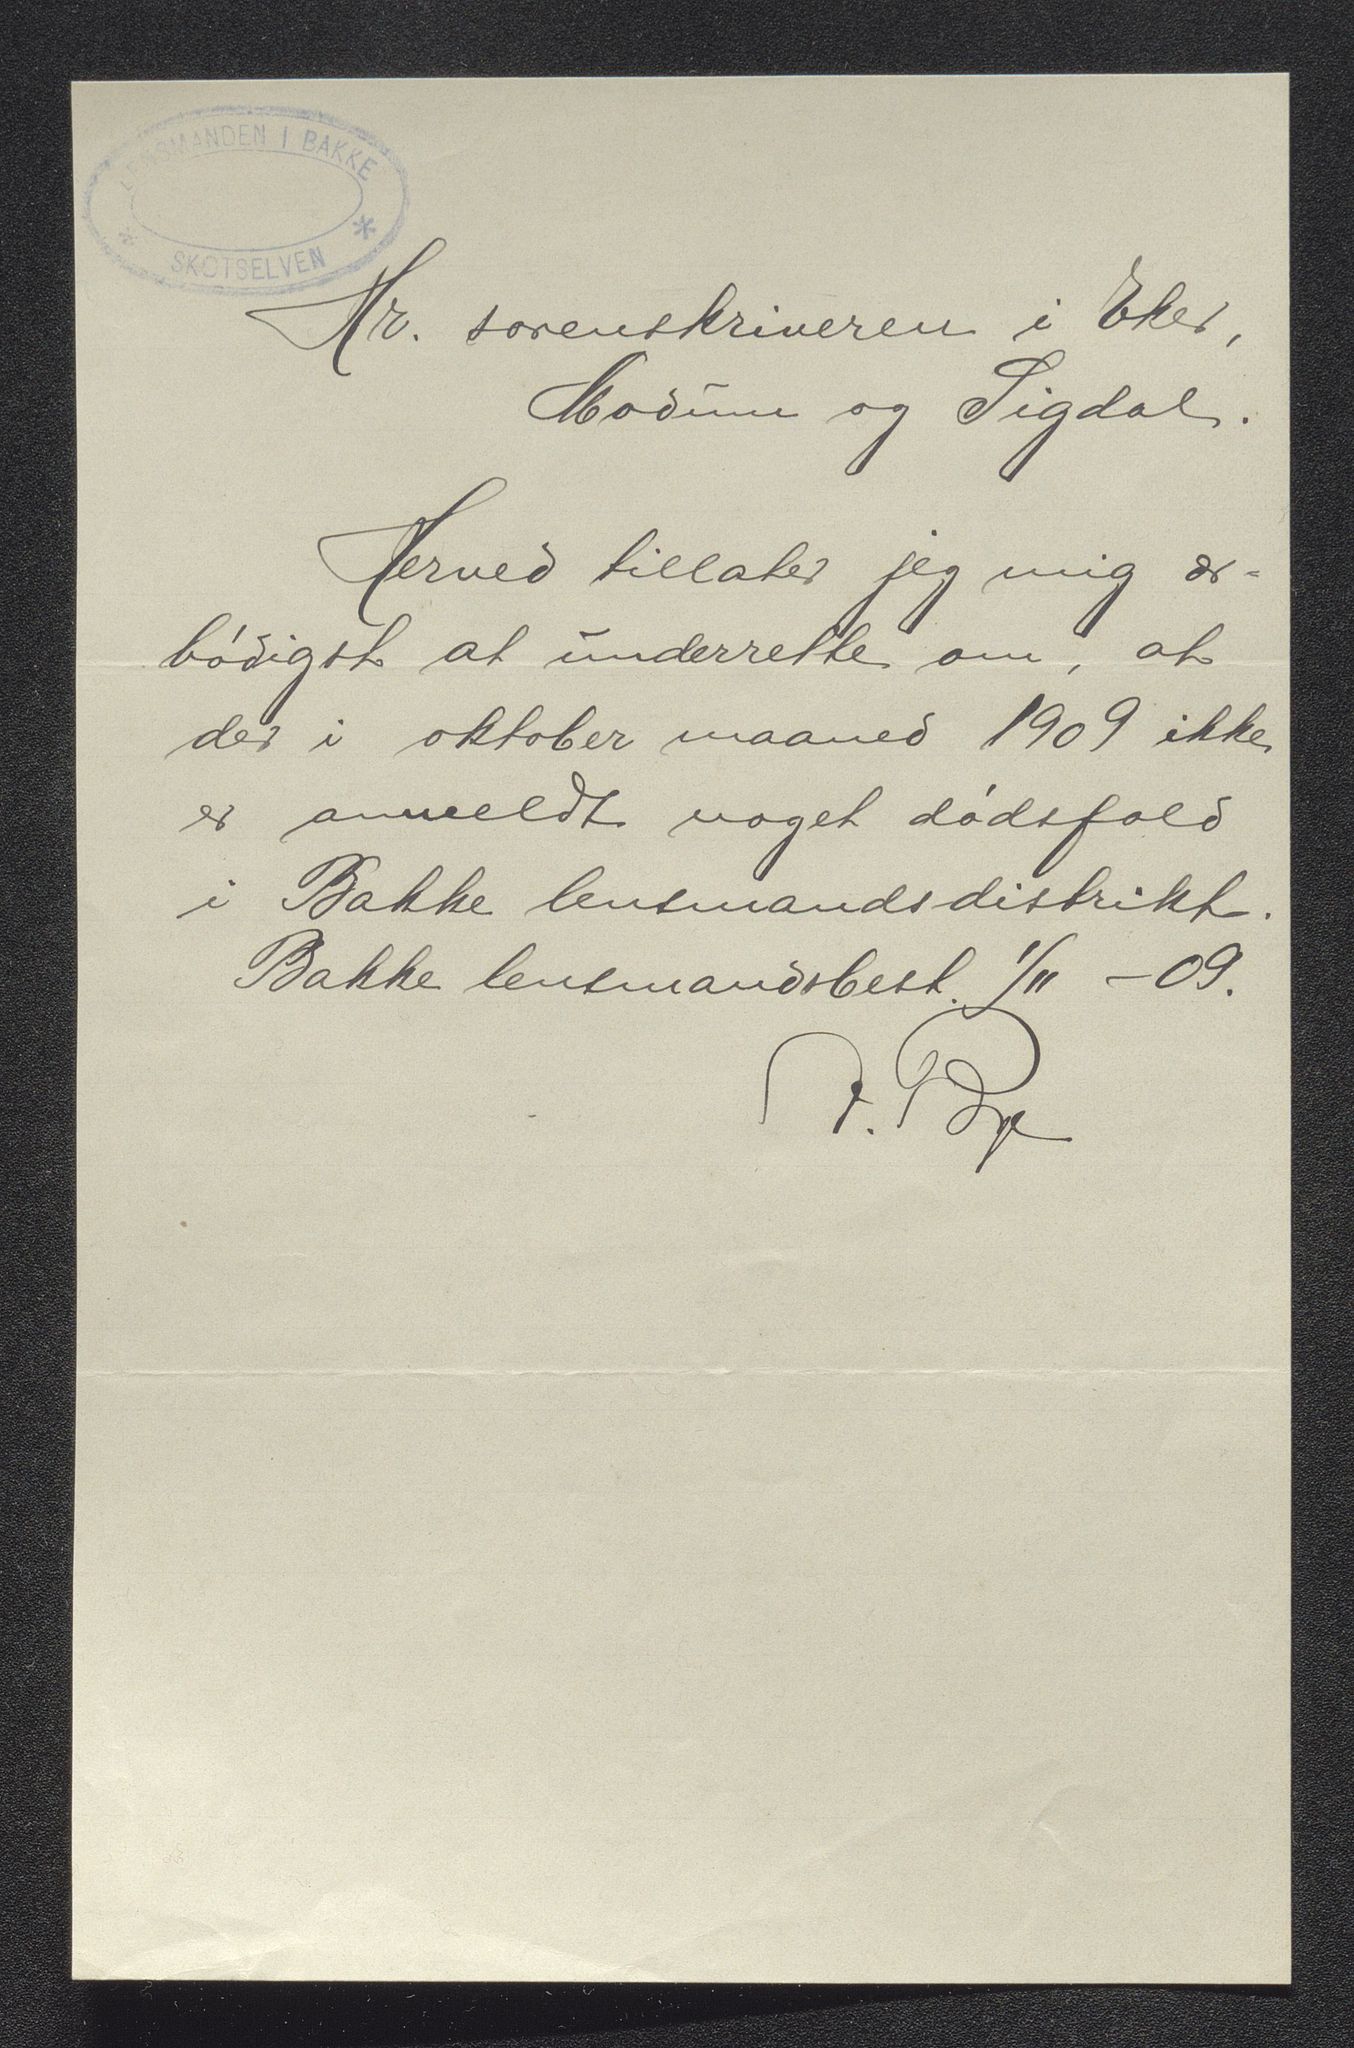 LENSMANDEN I BAKKE
* *
SKOTSELVEN
Hr. sorenskriveren i Eker,
Modum og Sigdal.
Herved tillater jeg mig ær-
bódigst at underrette om, at
der i oktober maaned 1909 ikke
er anmeldt noget dódsfald
i Bakke lensmandsdistrikt.
Bakke lensmandsbest. 1/11 -09.
Bye